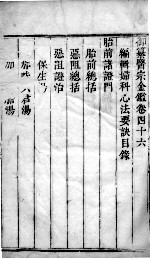 御纂醫宗金鑑卷四十六
編輯婦科心法要訣目錄
胎前諸證門
胎前總括
惡阻總括
惡阻證治
保生
六君湯
湯